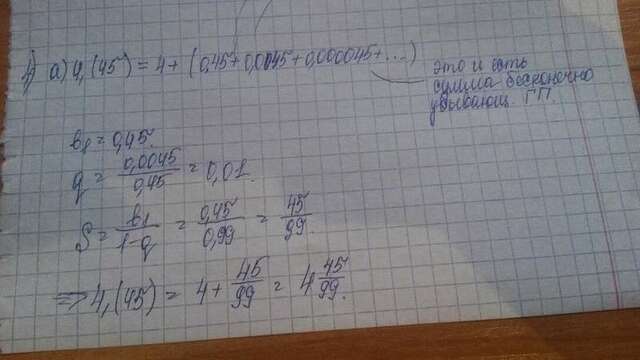 1) а) 4,(45) = 4 + (0,45 + 0,0045 + 0,000045 + ...)
это и есть
сумма бесконечно
убывающ. ГП.
b₁ = 0,45.
q = 0,0045/0,45 = 0,01.
S = b₁/1-q = 0,45/0,99 = 45/99.
=> 4,(45) = 4 + 45/99 = 4 45/99.